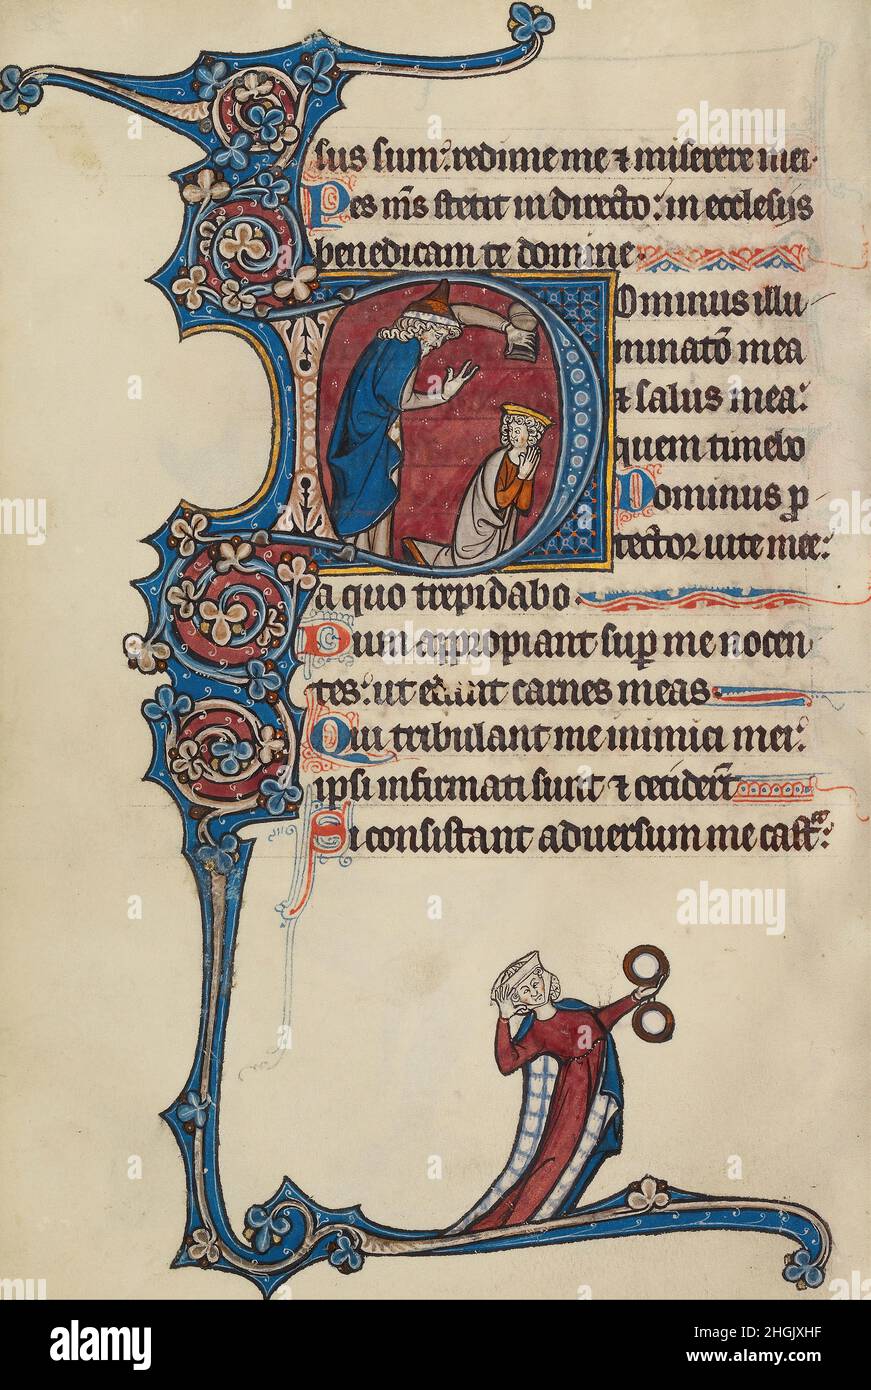 sus sum: redime me ⁊ miserere mei.
Pes m̄s stetit in directo: in ecclesiis
benedicam te domine.
Dominus illu
minatō mea
⁊ salus mea:
quem timebo
Dominus ꝓ
tector uite mee:
a quo trepidabo.
Dum appropiant suꝑ me nocen
tes: ut edant carnes meas.
Qui tribulant me inimici mei:
ipsi infirmati sunt ⁊ cecider̄t
Si consistant aduersum me castͬa:
alamy
Image ID: 2HGJXHF
www.alamy.com